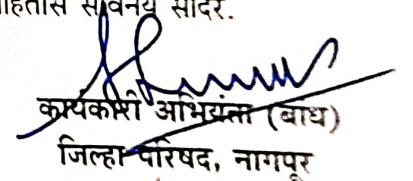 माहितीस सविनय सादर.
कार्यकारी अभियंता (बांध)
जिल्हा परिषद, नागपूर